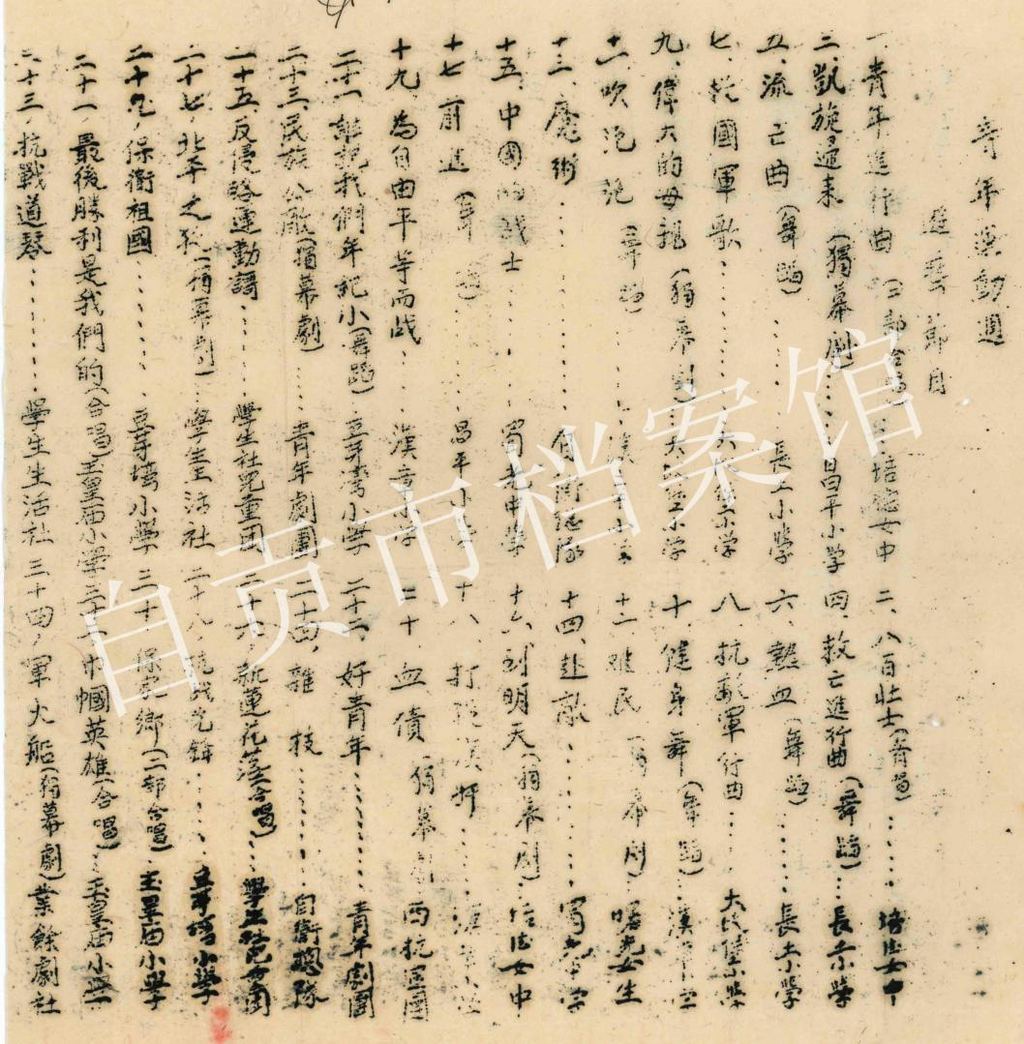 青年運動週
遊藝節目
一、青年進行曲（二部合唱）培德女中 二、八百壯士（齊唱）……培德女中
三、凱旋歸來（獨幕劇）……昌平小学 四、救亡進行曲（舞蹈）…長土小学
五、流亡曲（舞蹈）……長土小學 六、熱血（舞蹈）……長土小學
七、從國軍歌……大坟堡小学 八、抗敵軍行曲……大坟堡小學
九、偉大的母親（獨幕劇）大坟堡小学 十、健身舞（舞蹈）…漢章小学
十一、吹泡泡（舞蹈）……漢章小学 十二、難民（獨幕劇）…曙光女生
十三、魔術……自衛總隊 十四、赴敵……蜀光中学
十五、中國的战士……蜀光中學 十六、到明天（獨幕劇）…培德女中
十七、前進（舞蹈）……昌平小学 十八、打漢奸……漢章小学
十九、為自由平等而战……漢章小学 二十、血債（獨幕劇）西抗宣團
二十一、誰説我們年紀小（舞蹈）豆芽灣小學 二十二、好青年……青年劇團
二十三、民族公敵（獨幕劇）……青年劇團 二十四、雜技……自衛總隊
二十五、反侵略運動調……學生社児童團 二十六、新蓮花落（合唱）…學生社児童團
二十七、北平之夜（獨幕劇）…學生生活社 二十八、抗战先鋒……豆芽灣小學
二十九、保衛祖國……豆芽塆小學 三十、保家鄉（二部合唱）…玉皇庙小學
三十一、最後勝利是我們的（合唱）玉皇庙小學 三十二、巾幗英雄（合唱）…玉皇庙小學
三十三、抗戰道琴……學生生活社 三十四、軍火船（獨幕劇）業餘劇社
自贡市档案馆